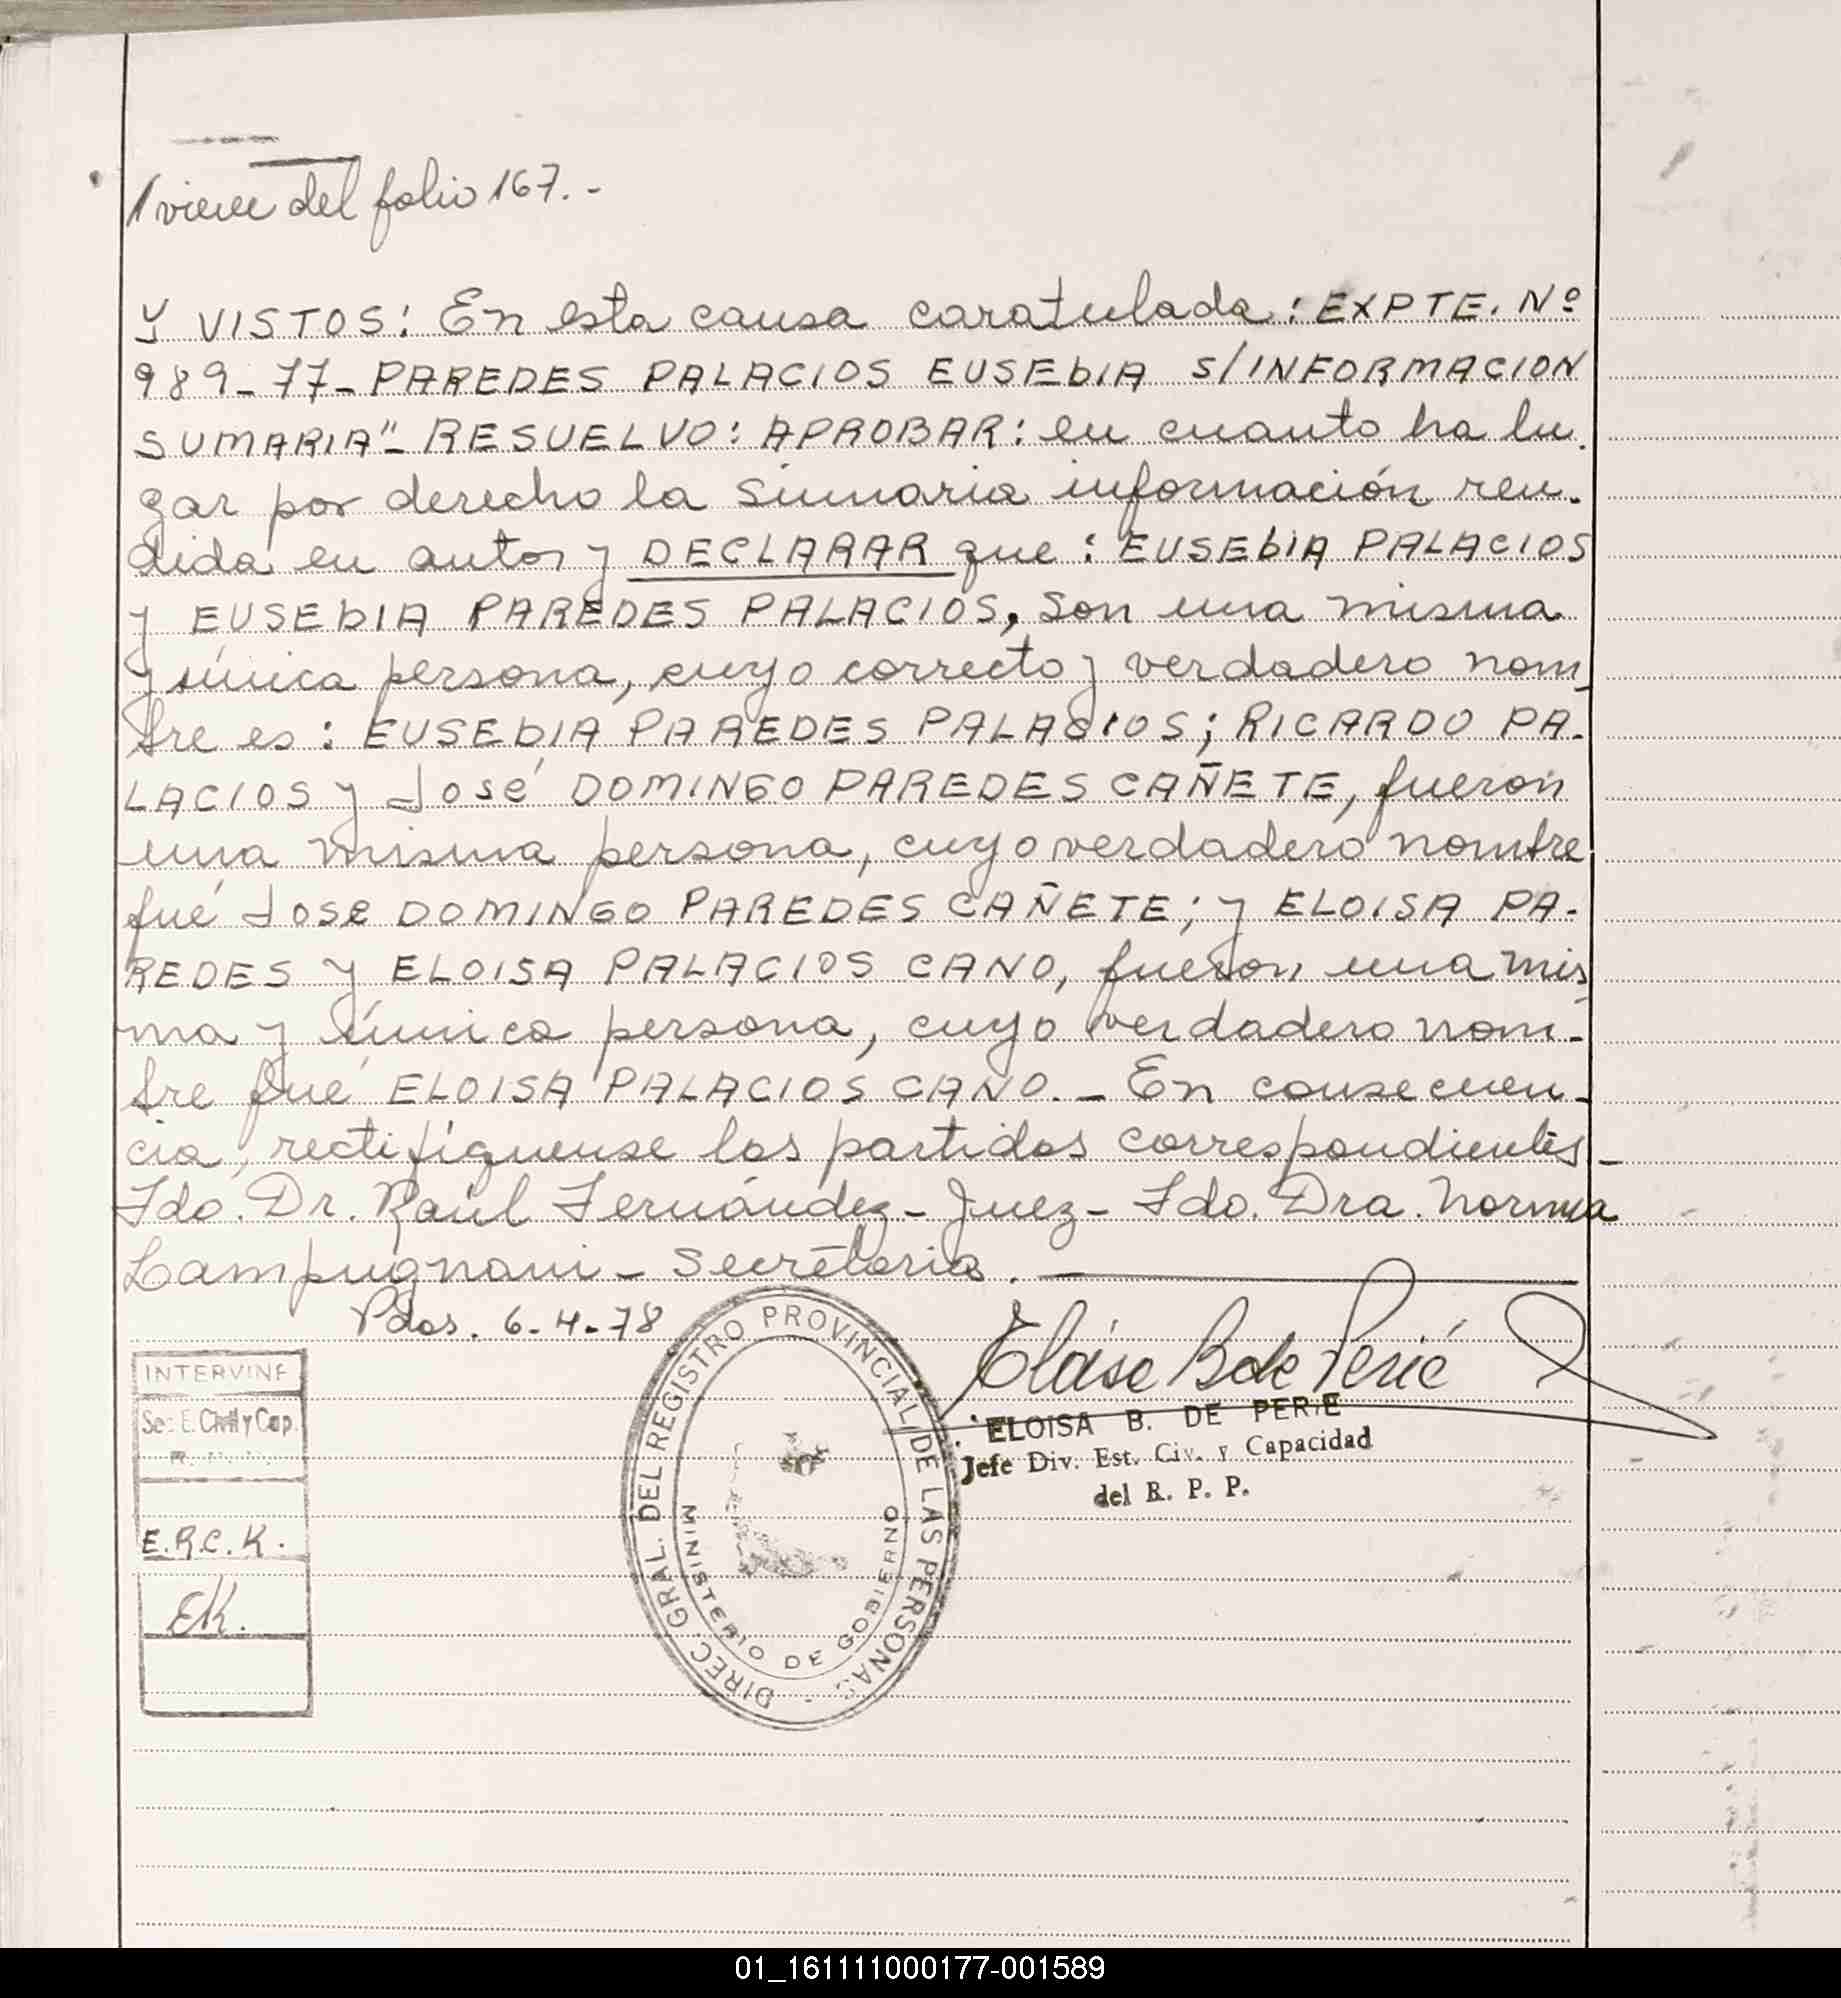 / viene del folio 167.-
Y VISTOS: En esta causa caratulada: EXPTE. Nº
989-77- PAREDES PALACIOS EUSEbIA S/INFORMACION
SUMARIA"- RESUELVO: APROBAR: en cuanto ha lu.
gar por derecho la sumaria información ren-
dida en autos y DECLARAR que: EUSEbIA PALACIOS
y EUSEbIA PAREDES PALACIOS, son una misma
y única persona, cuyo correcto y verdadero nom-
bre es: EUSEbIA PAREDES PALACIOS; RICARDO PA-
LACIOS y José DOMINGO PAREDES CAÑETE, fueron
una misma persona, cuyo verdadero nombre
fué JOSE DOMINGO PAREDES CAÑETE; y ELOISA PA-
REDES y ELOISA PALACIOS CANO, fueron una mis-
ma y única persona, cuyo verdadero nom-
bre fué ELOISA PALACIOS CANO.- En consecuen-
cia, rectifíquense las partidas correspondientes-
Fdo. Dr. Raúl Fernández- Juez- Fdo. Dra. Norma
Lampugnani - Secretaria.
Pdas. 6-4-78
DIREC. GRAL. DEL REGISTRO PROVINCIAL DE LAS PERSONAS
MINISTERIO DE GOBIERNO
Eloisa B de Perié
ELOISA B. DE PERIE
Jefe Div. Est. Civ. y Capacidad
del R. P. P.
INTERVINE
Sec. E. Civil y Cap.
E.R.C.K.
EK.
01_161111000177-001589